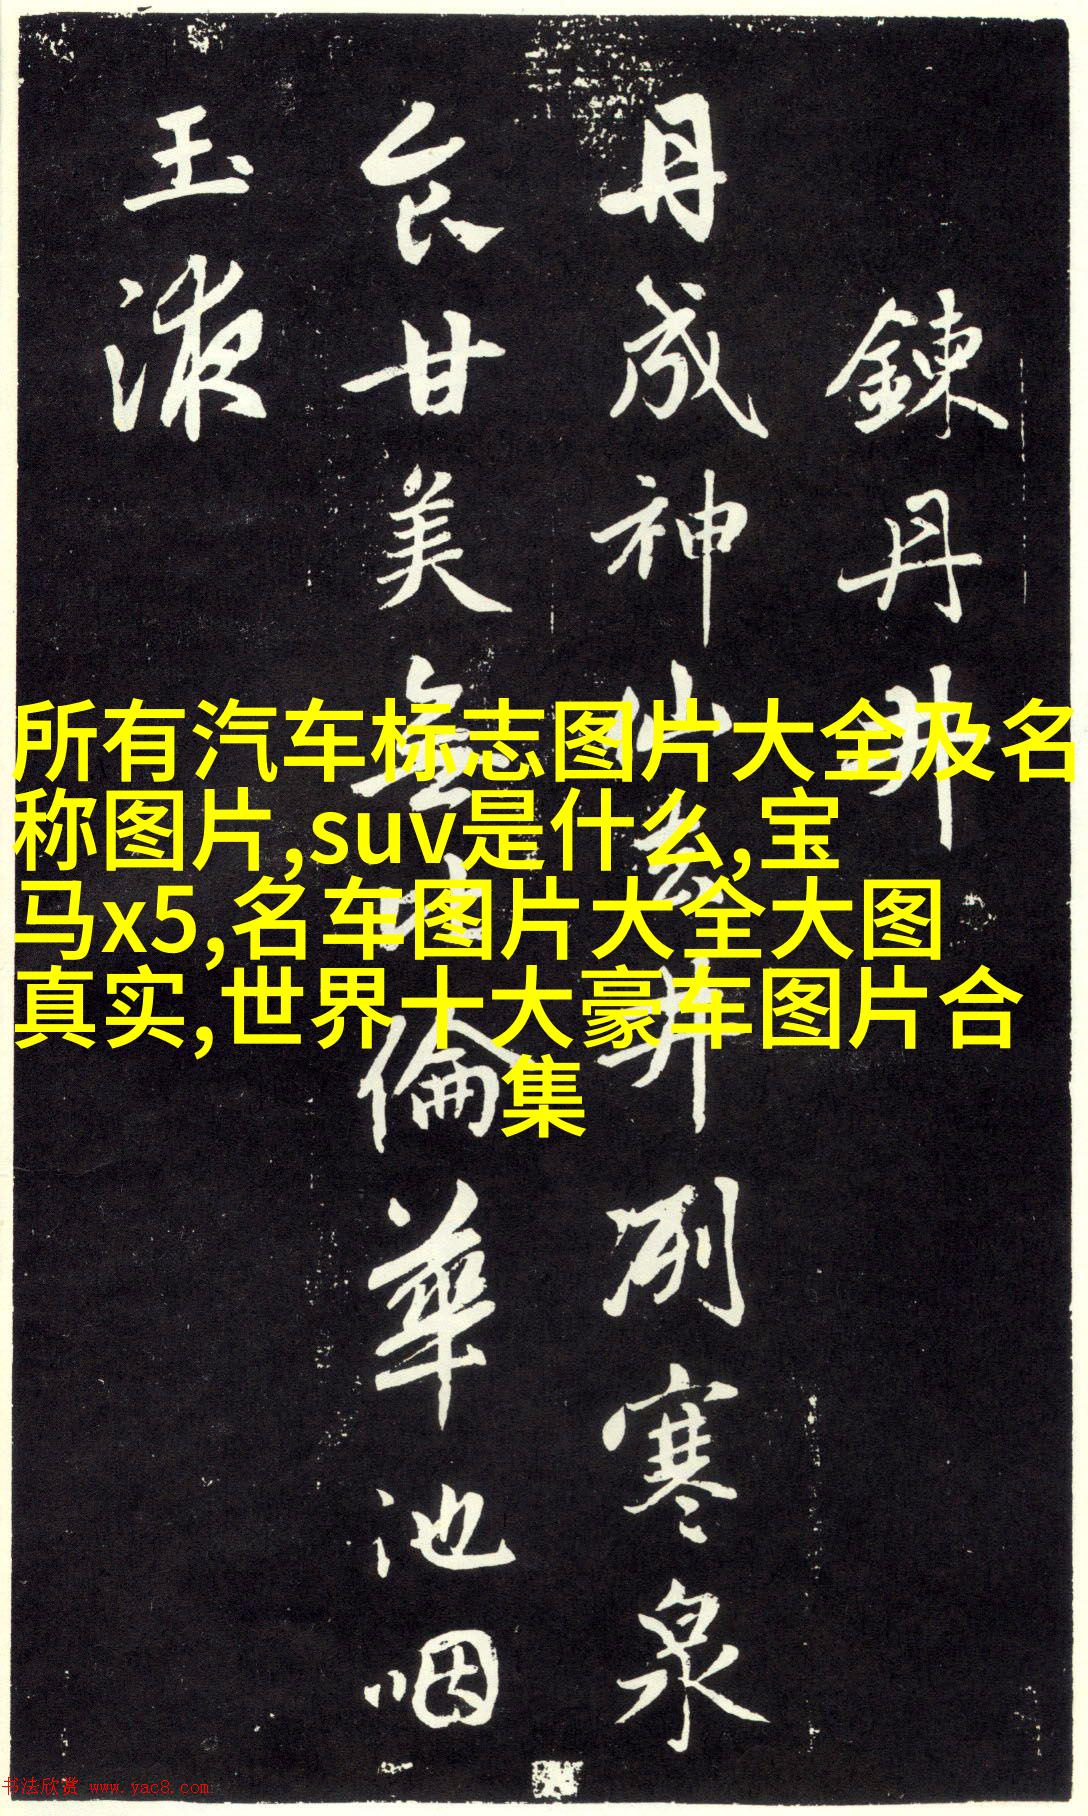 鍊丹井
丹成神仙去井冽寒泉
食甘美無比倫華池咽
玉液
所有汽车标志图片大全及名
称图片,suv是什么,宝
马x5,名车图片大全大图
真实,世界十大豪车图片合
集
书法欣赏 www.yac8.com